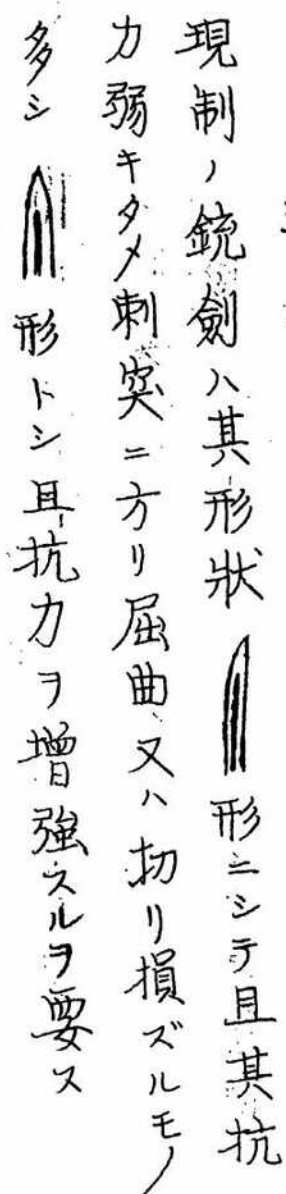 現制ノ銃劍ハ其形狀形ニシテ且其抗
力弱キタメ刺突ニ方リ屈曲又ハ切リ損ズルモノ
多シ形トシ且抗力ヲ增強スルヲ要ス